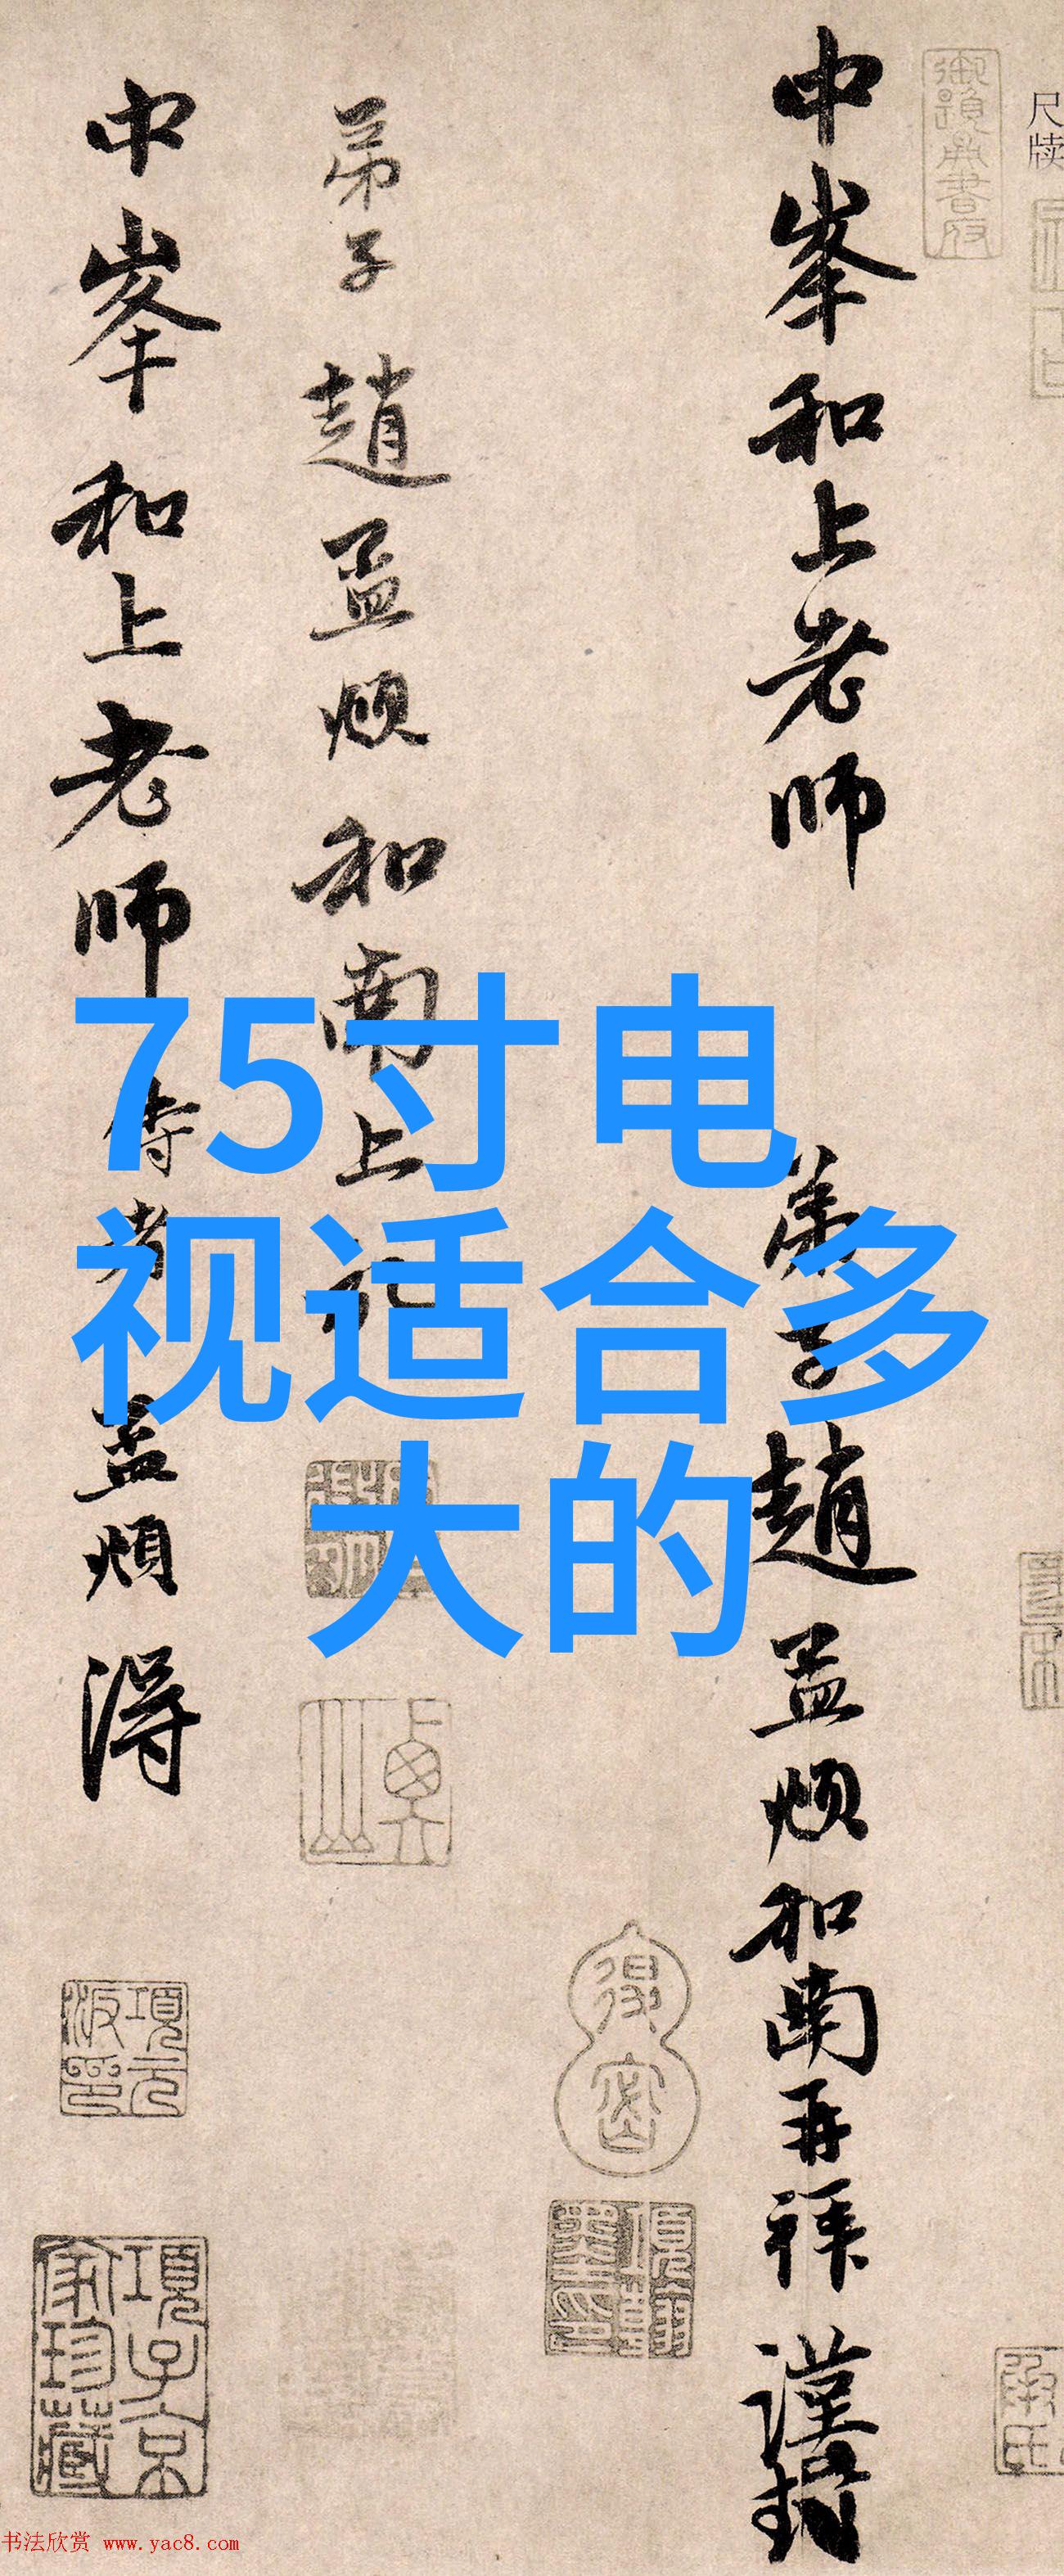 尺牍
中峯和上老师
弟子趙孟頫和南再拜謹封
弟子趙孟頫和南上記
中峯和上老师侍者孟頫
75寸电
视适合多
大的
項子京
家珍藏
书法欣赏 www.yac8.com